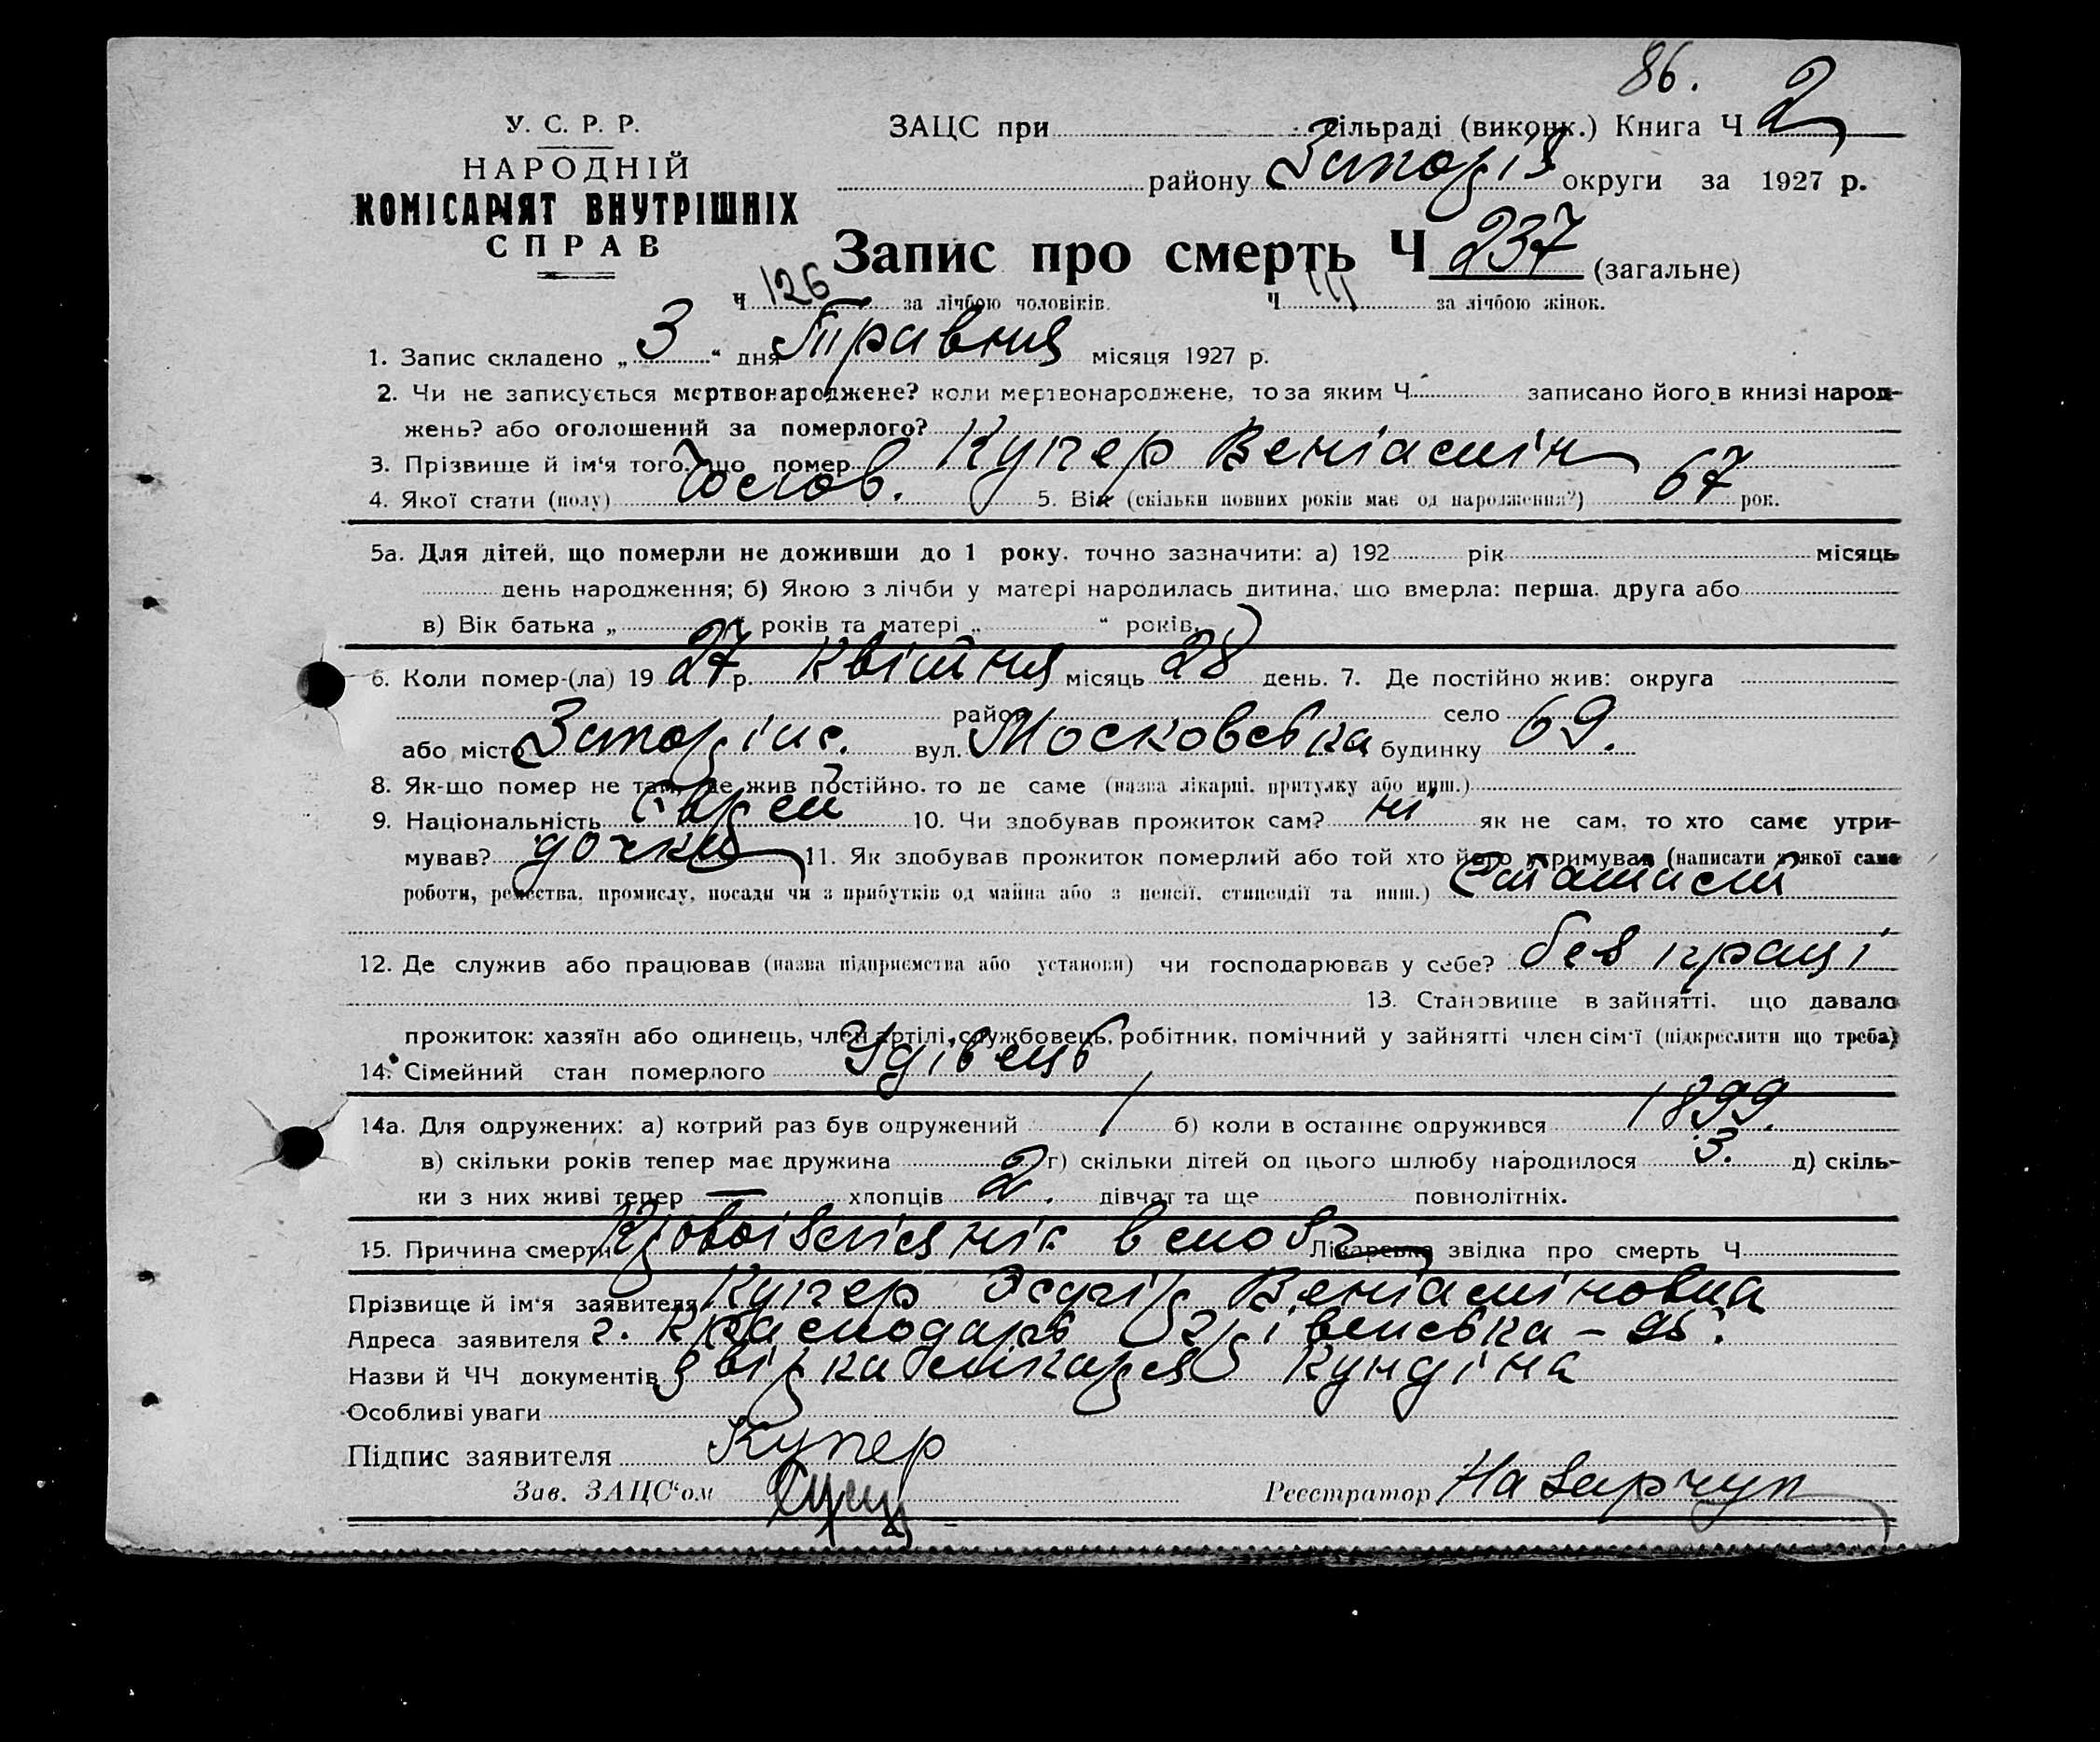 86.
У. С. Р. Р.
НАРОДНІЙ
КОМІСАРІЯТ ВНУТРІШНІХ
СПРАВ
ЗАЦС при сільраді (виконк.) Книга Ч 2
району Запоріз округи за 1927 р.
Запис про смерть Ч 237 (загальне)
Ч 126 за лічбою чоловіків. Ч 111 за лічбою жінок.
1. Запис складено „ 3 “ дня Травня місяця 1927 р.
2. Чи не записується мертвонароджене? коли мертвонароджене, то за яким Ч записано його в книзі народ-
жень? або оголошений за померлого?
3. Прізвище й ім'я того, що помер Купер Веніамін
4. Якої стати (полу) Чолов. 5. Вік (скільки повних років має од народження?) 67 рок.
5а. Для дітей, що померли не доживши до 1 року, точно зазначити: а) 192 рік місяць
день народження; б) Якою з лічби у матері народилась дитина, що вмерла: перша, друга або
в) Вік батька „ “ років та матері „ “ років.
6. Коли помер-(ла) 19 27 р. Квітня місяць 28 день. 7. Де постійно жив: округа
район село
або місто Запоріж. вул. Московська будинку 69.
8. Як-що помер не там, де жив постійно, то де саме (назва лікарні, притулку або инш.)
9. Національність Єврей 10. Чи здобував прожиток сам? ні як не сам, то хто саме утри-
мував? дочка 11. Як здобував прожиток померлий або той хто його утримував (написати з якої саме
роботи, ремества, промислу, посади чи з прибутків од майна або з пенсії, стипендії та инш.) Статист
12. Де служив або працював (назва підприємства або установи) чи господарював у себе? без праці
13. Становище в зайнятті, що давало
прожиток: хазяїн або одинець, член артілі, службовець, робітник, помічний у зайнятті член сім'ї (підкреслити що треба)
14. Сімейний стан померлого Удівець
14а. Для одружених: а) котрий раз був одружений 1 б) коли в останнє одружився 1899.
в) скільки років тепер має дружина г) скільки дітей од цього шлюбу народилося 3. д) скіль-
ки з них живі тепер — хлопців 2. дівчат та ще повнолітніх.
15. Причина смерти Лікарська звідка про смерть Ч
Прізвище й ім'я заявителя Купер Веніаміновна
Адреса заявителя г. Краснодарь 95.
Назви й ЧЧ документів звідка лікаря Кундіна
Особливі уваги
Підпис заявителя Купер
Зав. ЗАЦС'ом Реєстратор Назарчук